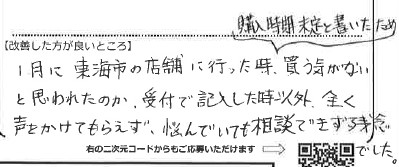 購入時期未定と書いたため
【改善した方が良いところ】
1月に東海市の店舗に行った時、買う気がない
と思われたのか、受付で記入した時以外、全く
声をかけてもらえず、悩んでいても相談できずう残念
でした。
右の二次元コードからもご応募いただけます